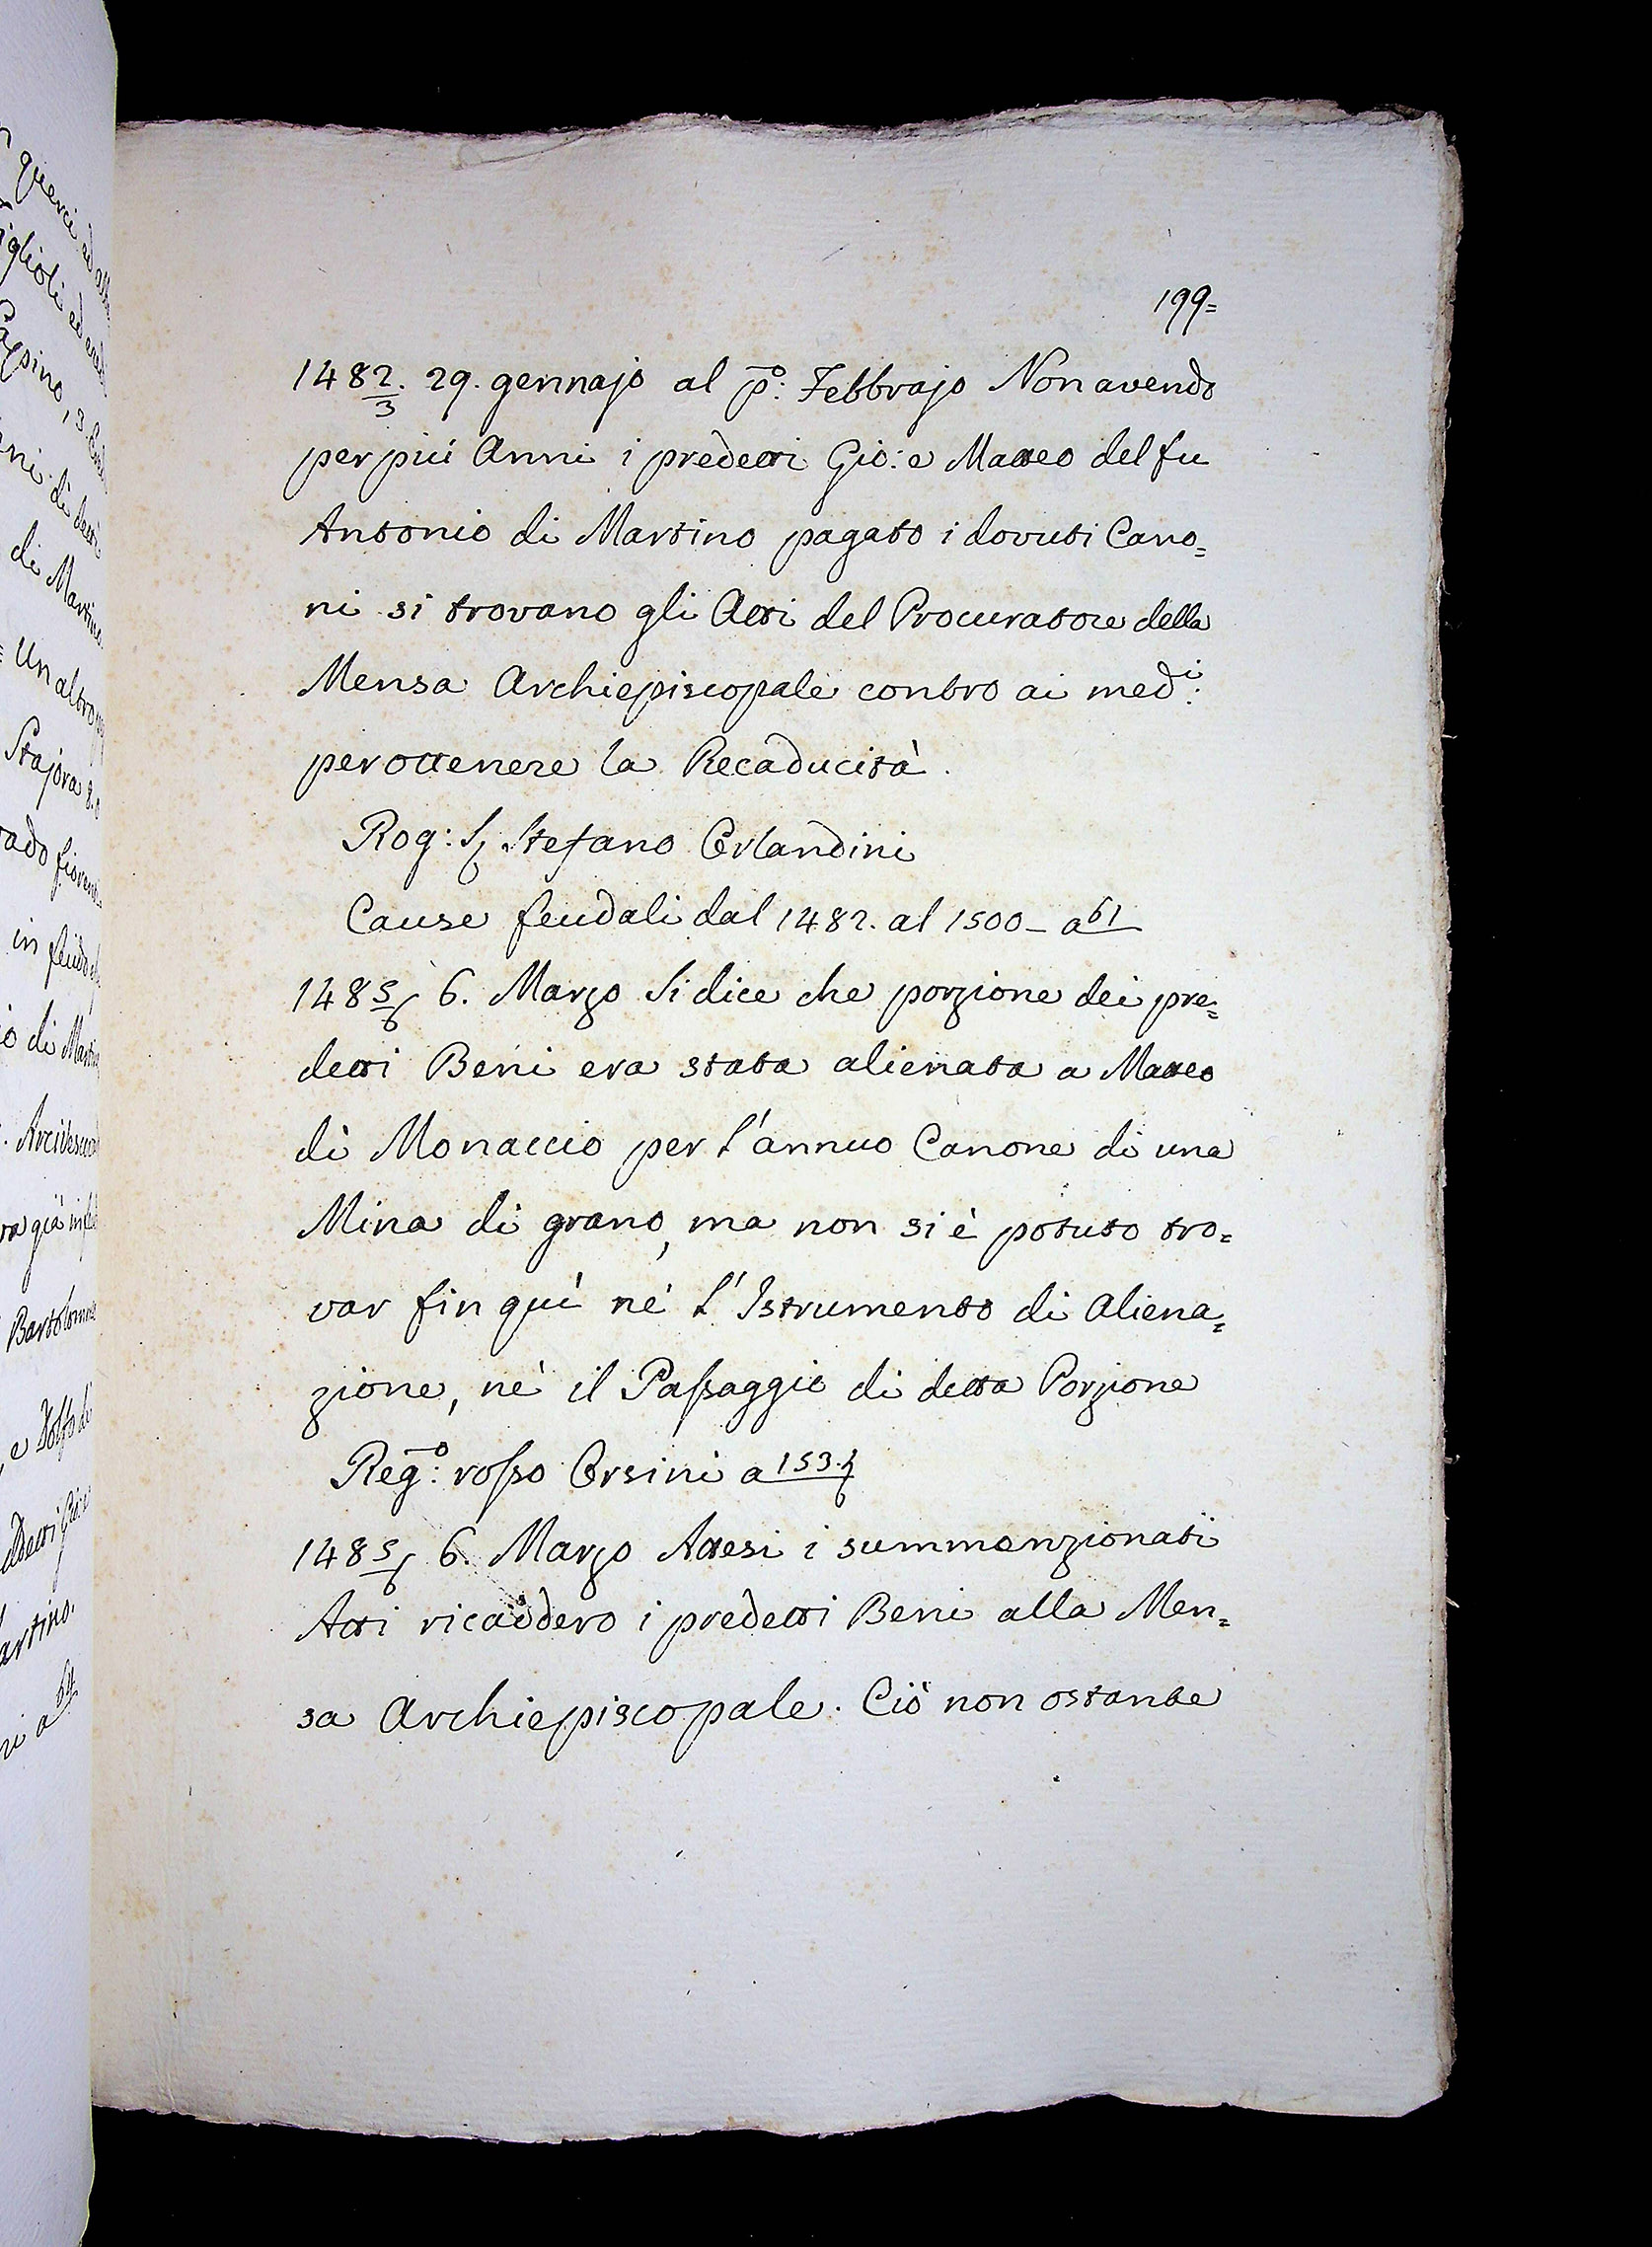 199=
1482/3. 29. gennajo al p.º Febbrajo Non avendo
per più Anni i predetti Gio: e Matteo del fu
Antonio di Martino pagato i dovuti Cano=
ni si trovano gli Atti del Procuratore della
Mensa Archiepiscopale contro ai med.i:
per ottenere la Recaducità.
Rog: S. Stefano Orlandini
Cause feudali dal 1482. al 1500 - a 61
1485/6 6. Marzo Si dice che porzione dei pre=
detti Beni era stata alienata a Matteo
di Monaccio per l'annuo Canone di una
Mina di grano, ma non si è potuto tro=
var fin quì nè l'Istrumento di Aliena=
zione, nè il Passaggio di detta Porzione
Reg.º: rosso Orsini a 153.
1485/6 6. Marzo Attesi i summenzionati
Atti ricaddero i predetti Beni alla Men=
sa Archiepiscopale. Ciò non ostante
querci
figlioli ed
di detti
di Martino
= Un altro
Stajora 8.
in feudo
io di Martino
Bartolomeo
e Dolfo di
artino.